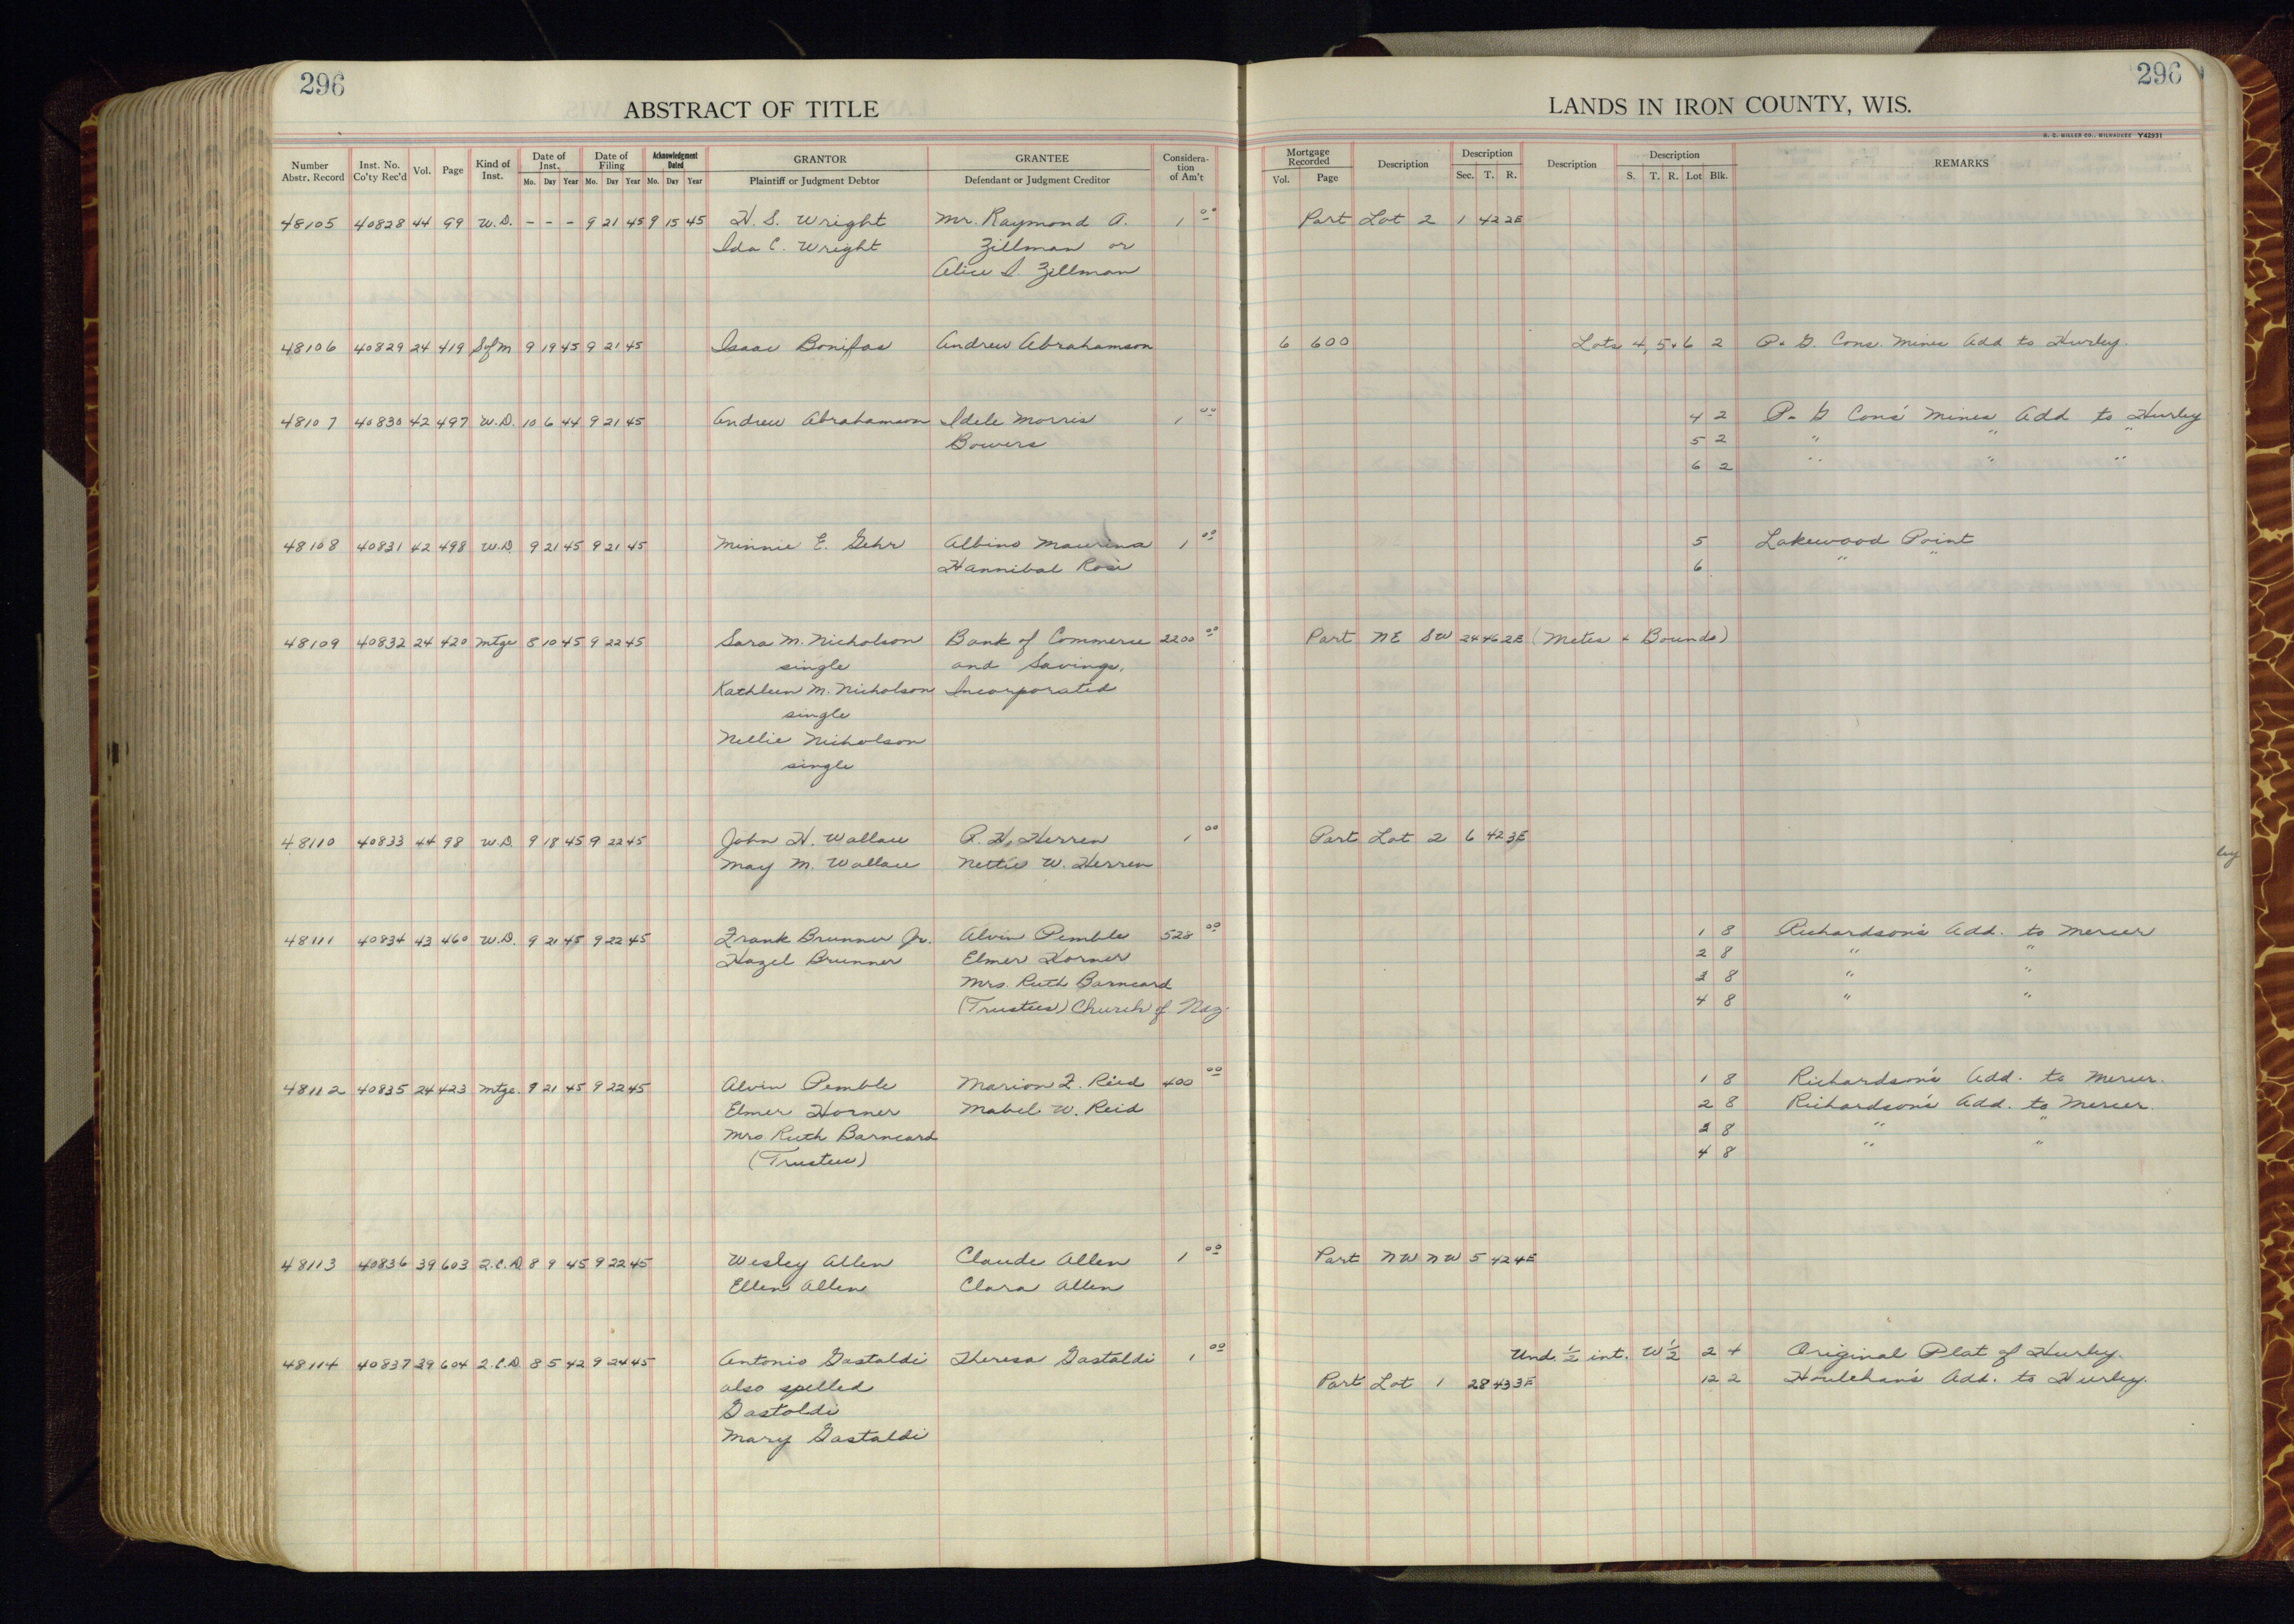 296
ABSTRACT OF TITLE
Number Abstr. Record Inst. No. Co'ty Rec'd Vol. Page Kind of Inst. Date of Inst. Mo. Day Year Date of Filing Mo. Day Year Acknowledgment Dated Mo. Day Year GRANTOR Plaintiff or Judgment Debtor GRANTEE Defendant or Judgment Creditor Consideration of Am't
48105 40828 44 99 W.D. - - - 9 21 45 9 15 45 H. S. Wright Mr. Raymond A. 1 00
Ida C. Wright Zillman or
Alice I. Zillman
48106 40829 24 419 S of M 9 19 45 9 21 45 Isaac Bonifas Andrew Abrahamson
48107 40830 42 497 W.D. 10 6 44 9 21 45 Andrew Abrahamson Idele Morris 1 00
Bowers
48108 40831 42 498 W.D. 9 21 45 9 21 45 Minnie E. Gehr Albino Maurina 1 00
Hannibal Rosi
48109 40832 24 420 Mtge 8 10 45 9 22 45 Sara M. Nicholson Bank of Commerce 2200 00
single and Savings,
Kathleen M. Nicholson Incorporated
single
Nellie Nicholson
single
48110 40833 44 98 W.D. 9 18 45 9 22 45 John H. Wallace R. H. Herren 1 00
May M. Wallace Nettie W. Herren
48111 40834 43 460 W.D. 9 21 45 9 22 45 Frank Brunner Jr. Alvin Pemble 528 00
Hazel Brunner Elmer Horner
Mrs. Ruth Barneard
(Trustees) Church of Naz.
48112 40835 24 423 Mtge. 9 21 45 9 22 45 Alvin Pemble Marion F. Reid 400 00
Elmer Horner Mabel W. Reid
Mrs Ruth Barneard
(Trustees)
48113 40836 39 603 Q.C.D. 8 9 45 9 22 45 Wesley Allen Claude Allen 1 00
Ellen Allen Clara Allen
48114 40837 39 604 Q.C.D. 8 5 42 9 24 45 Antonio Gastaldi Theresa Gastaldi 1 00
also spelled
Gastoldi
Mary Gastaldi
296
LANDS IN IRON COUNTY, WIS.
H. C. MILLER CO., MILWAUKEE Y42931
Mortgage Recorded Vol. Page Description Description Sec. T. R. Description Description S. T. R. Lot Blk. REMARKS
Part Lot 2 1 42 2E
6 600 Lots 4, 5 & 6 2 P. & G. Cons. Mines Add to Hurley.
4 2 P. & G Cons' Mines Add to Hurley
5 2 " " "
6 2 " " "
5 Lakewood Point
6 " "
Part NE SW 24 46 2E (Metes & Bounds)
Part Lot 2 6 42 3E
ley
1 8 Richardson's Add. to Mercer
2 8 " "
3 8 " "
4 8 " "
1 8 Richardson's Add. to Mercer.
2 8 Richardson's Add. to Mercer.
3 8 " "
4 8 " "
Part NW NW 5 42 4E
Und. 1/2 int. W 1/2 2 4 Original Plat of Hurley.
Part Lot 1 28 43 3E 12 2 Houlehan's Add. to Hurley.